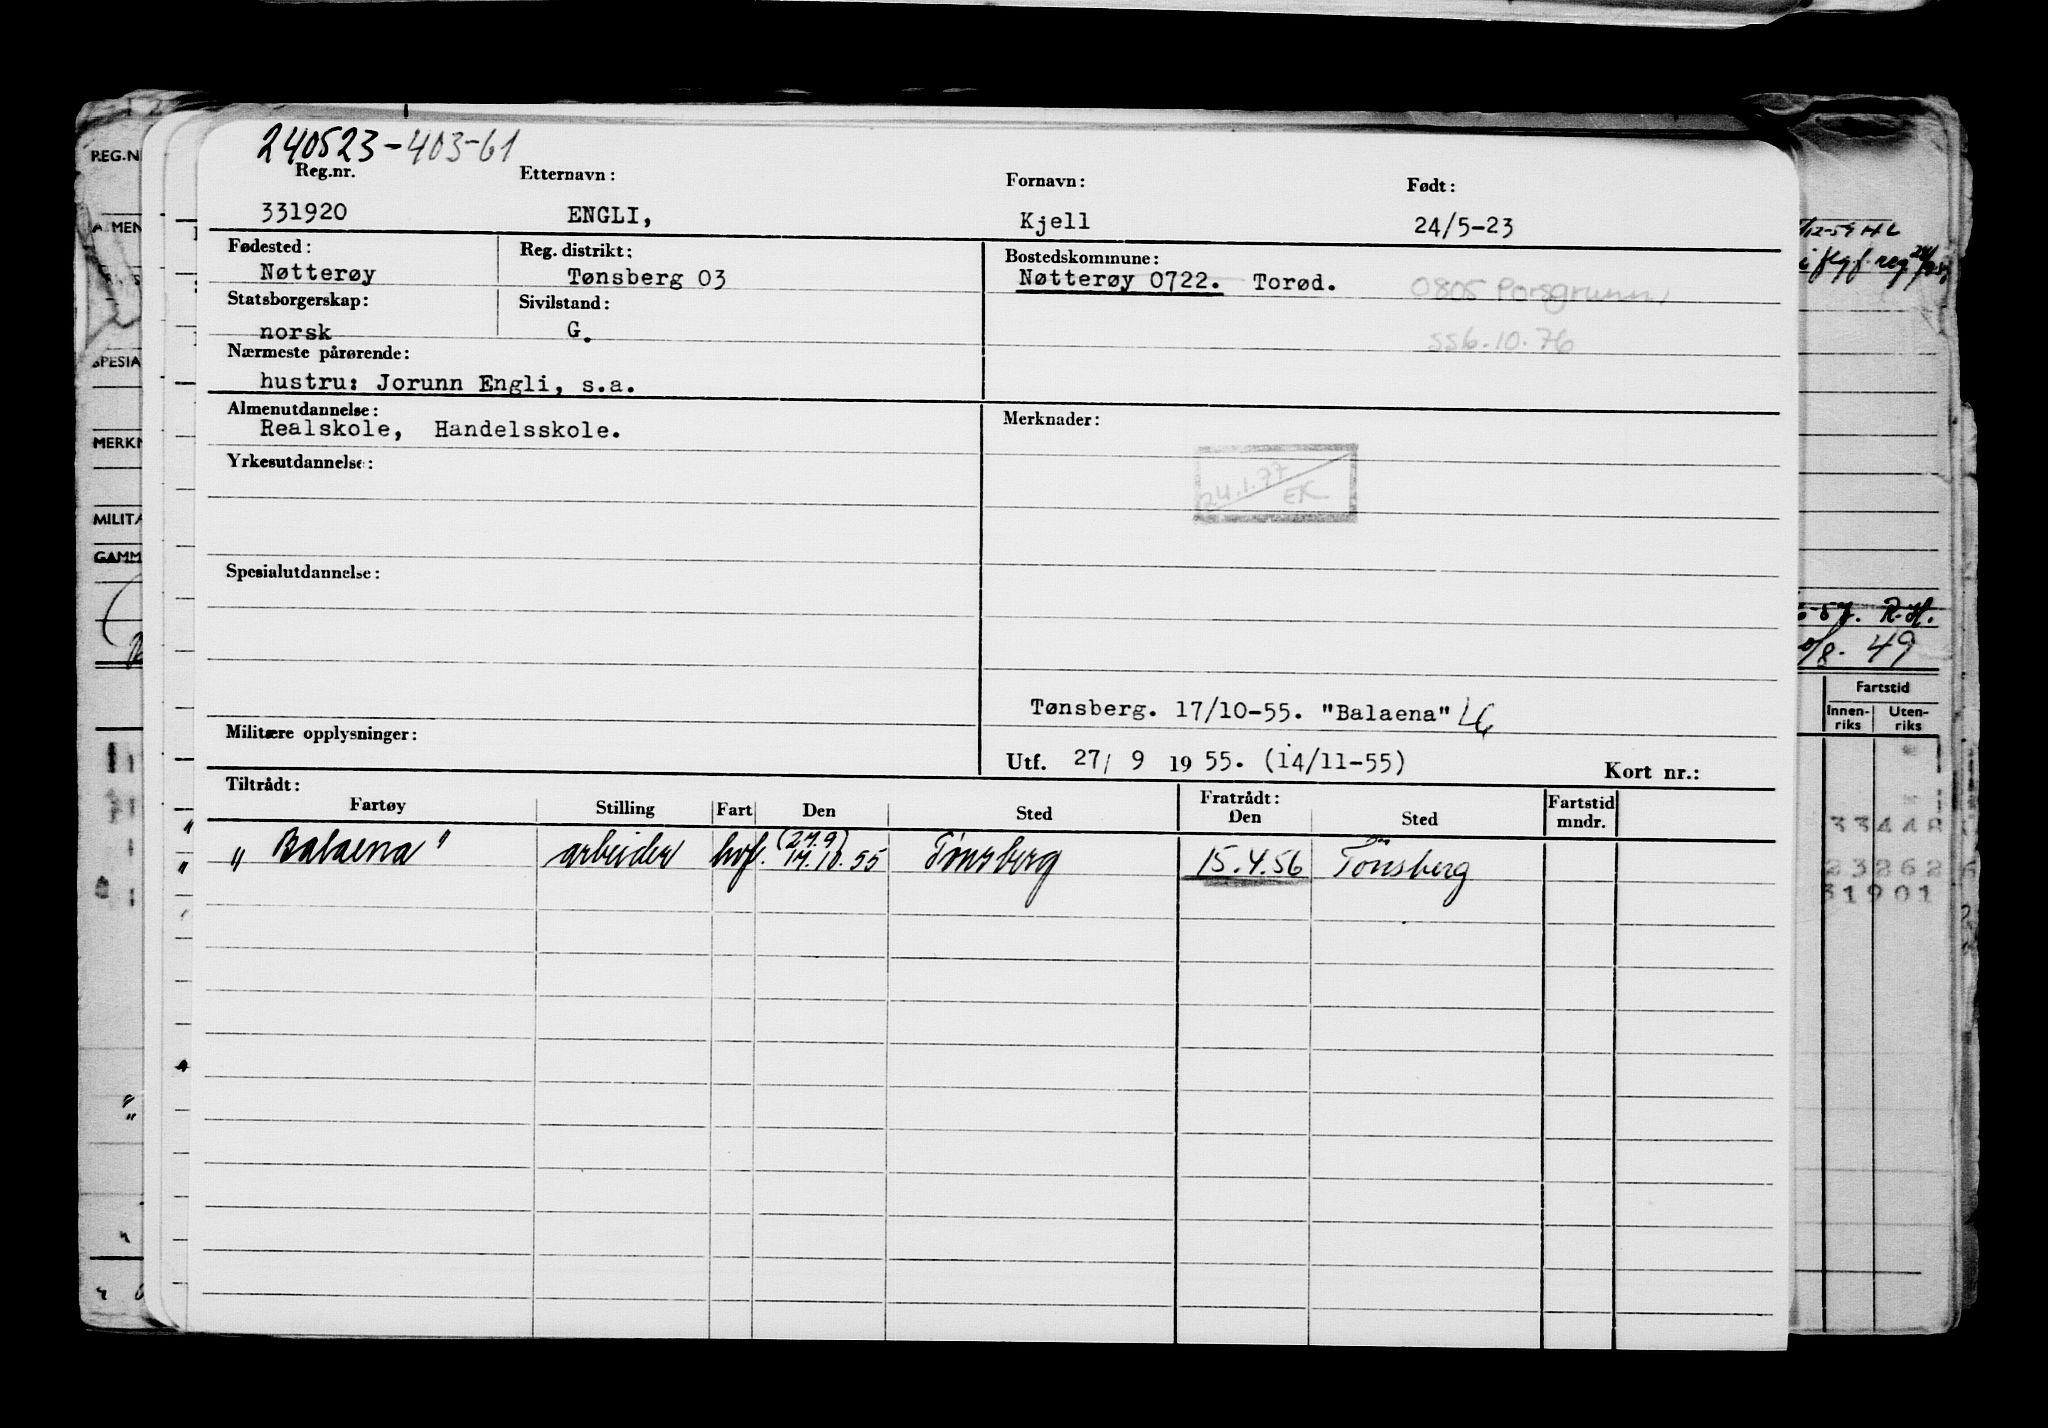 240523-403-61
Reg.nr. Etternavn: Fornavn: Født:
331920 ENGLI, Kjell 24/5-23
Fødested: Reg. distrikt: Bostedskommune:
Nøtterøy Tønsberg 03 Nøtterøy 0722. Torød. 0805 Porsgrunn
Statsborgerskap: Sivilstand:
norsk G. 556.10.76
Nærmeste pårørende:
hustru: Jorunn Engli, s.a.
Almenutdannelse: Merknader:
Realskole, Handelsskole.
Yrkesutdannelse:
24.1.77
EK
Spesialutdannelse:
Tønsberg. 17/10-55. "Balaena" LG
Militære opplysninger:
Utf. 27/ 9 19 55. (14/11-55) Kort nr.:
Tiltrådt: Fratrådt: Fartstid
Fartøy Stilling Fart Den Sted Den Sted mndr.
(27.9)
" Balaena " arbeider hvf. 17.10.55 Tønsberg 15.4.56 Tønsberg
REG.N
SPESIA
MERKN
MILITÆ
GAMM
R.H.
/8. 49
Fartstid
Innen-
riks
Uten-
riks
33448
23262
31901